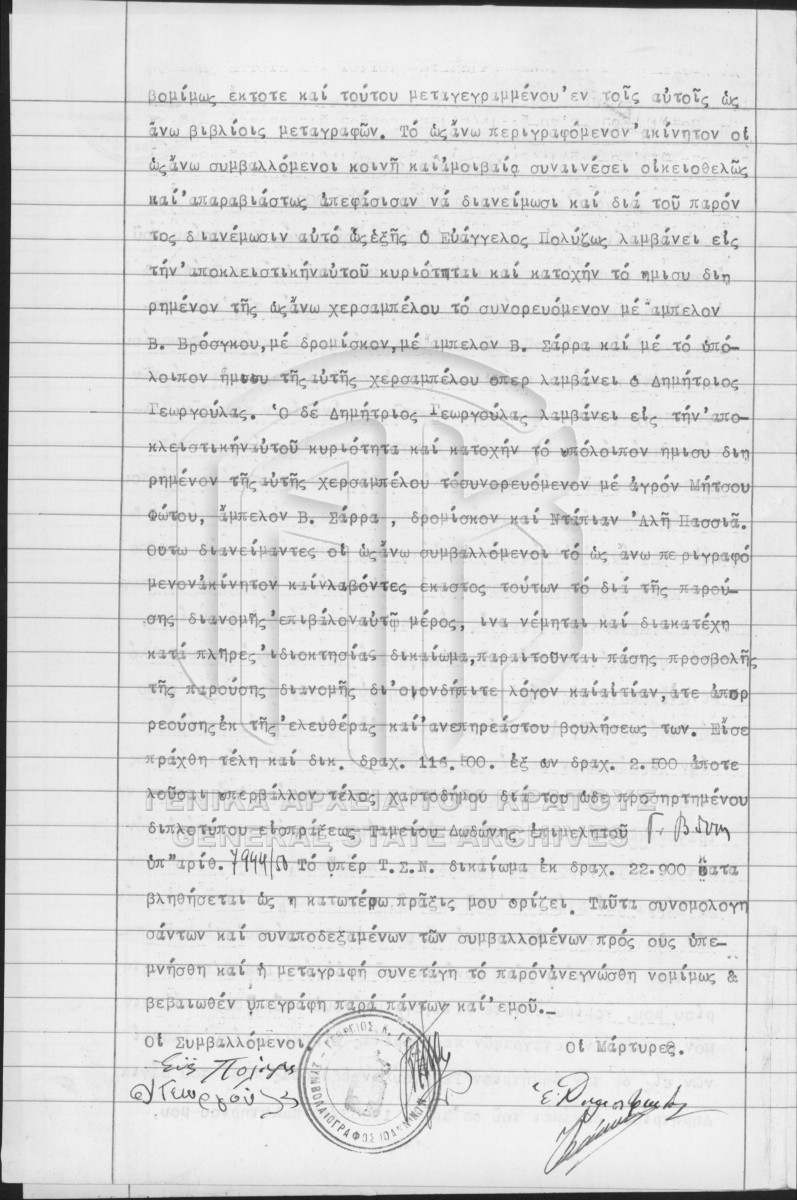 βομίμως έκτοτε καί τούτου μεταγεγραμμένου'εν τοῖς αὐτοῖς ὡς
ἄνω βιβλίοις μεταγραφῶν. Τό ὡςἄνω περιγραφόμενον'ακίνητον οἱ
ὡςἄνω συμβαλλόμενοι κοινῇ καί'αμοιβαίᾳ συναινέσει οἰκειοθελῶς
καί'απαραβιάστως ἀπεφάσισαν νά διανείμωσι καί διά τοῦ παρόν
τος διανέμωσιν αὐτό ὡςἑξῆς Ὁ Εὐάγγελος Πολύζως λαμβάνει εἰς
τήν'αποκλειστικήναὐτοῦ κυριότηται καί κατοχήν τό ημισυ διῃ
ρημένον τῆς ὡςἄνω χερσαμπέλου τό συνορευόμενον μέ ἄμπελον
Β. Βρόσγκου,μέ δρομίσκον,μέ αμπελον Β. Σάρρα καί μέ τό ὑπό-
λοιπον ἥμισυ τῆςαὐτῆς χερσαμπέλου οπερ λαμβάνει ὁ Δημήτριος
Γεωργούλας. Ὁ δέ Δημήτριος Γεωργούλας λαμβάνει είς τήν'απο-
κλειστικήναὐτοῦ κυριότητα καί κατοχήν τό υπόλοιπον ημισυ διῃ
ρημένον τῆςαὐτῆς χερσαμπέλου τόσυνορευόμενον μέ ἀγρόν Μήτσου
Φώτου, ἄμπελον Β. Σάρρα , δρομίσκον καί Ντάπιαν 'Αλῆ Πασσιᾶ.
Οὕτω διανείμαντες οἱ ὡςἄνω συμβαλλόμενοι τό ὡς ἄνω περιγραφό
μενονἀκίνητον καίνλαβόντες ἕκαστος τούτων τό διά τῆς παρού-
σης διανομῆς'επιβάλοναὐτῷ μέρος, ινα νέμηται καί διακατέχῃ
κατά πλῆρες'ιδιοκτησίας δικαίωμα,παραιτοῦνται πάσης προσβολῆς
τῆς παρούσης διανομῆς δι'οιονδήπιτε λόγον καίαἰτίαν,ατε ἀπορ
ρεούσηςἐκ τῆς'ελευθέρας καί'ανεπηρεάστου βουλήσεως των. Εἰσε
πράχθη τέλη καί δικ. δραχ. 116.500. ἐξ ων δραχ. 2.500 ἀποτε
λοῦσαι υπερβάλλον τέλος χαρτοδήμου διά του ὧδε προσηρτημένου
διπλοτύπου εἰσπράξεως Ταμείου Δωδώνης ἐπιμελητοῦ
ὑπ"αριθ. Τό ὑπέρ Τ.Σ.Ν. δικαίωμα ἐκ δραχ. 22.900 κατα
βληθήσεται ὡς ἡ κατωτέρω πρᾶξις μου ορίζει. Ταῦτα συνομολογη
σάντων καί συναποδεξαμένων τῶν συμβαλλομένων πρός ους ὑπε-
μνήσθη καί ἡ μεταγραφή συνετάγη τό παρόνἀνεγνώσθη νομίμως &
βεβαιωθέν υπεγράφη παρά πάντων καί'εμοῦ.-
Οἱ Συμβαλλόμενοι. Οἱ Μάρτυρες.
Γεωργούλας
ΓΕΝΙΚΑ ΑΡΧΕΙΑ ΤΟΥ ΚΡΑΤΟΥΣ
GENERAL STATE ARCHIVES
ΣΥΜΒΟΛΑΙΟΓΡΑΦΟΣ ΙΩΑΝΝΙΝΩΝ